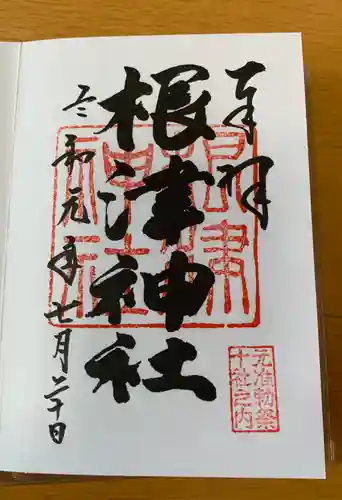 奉拝
根津神社
令和元年七月二十日
根津
神社
元准勅祭
十社之内